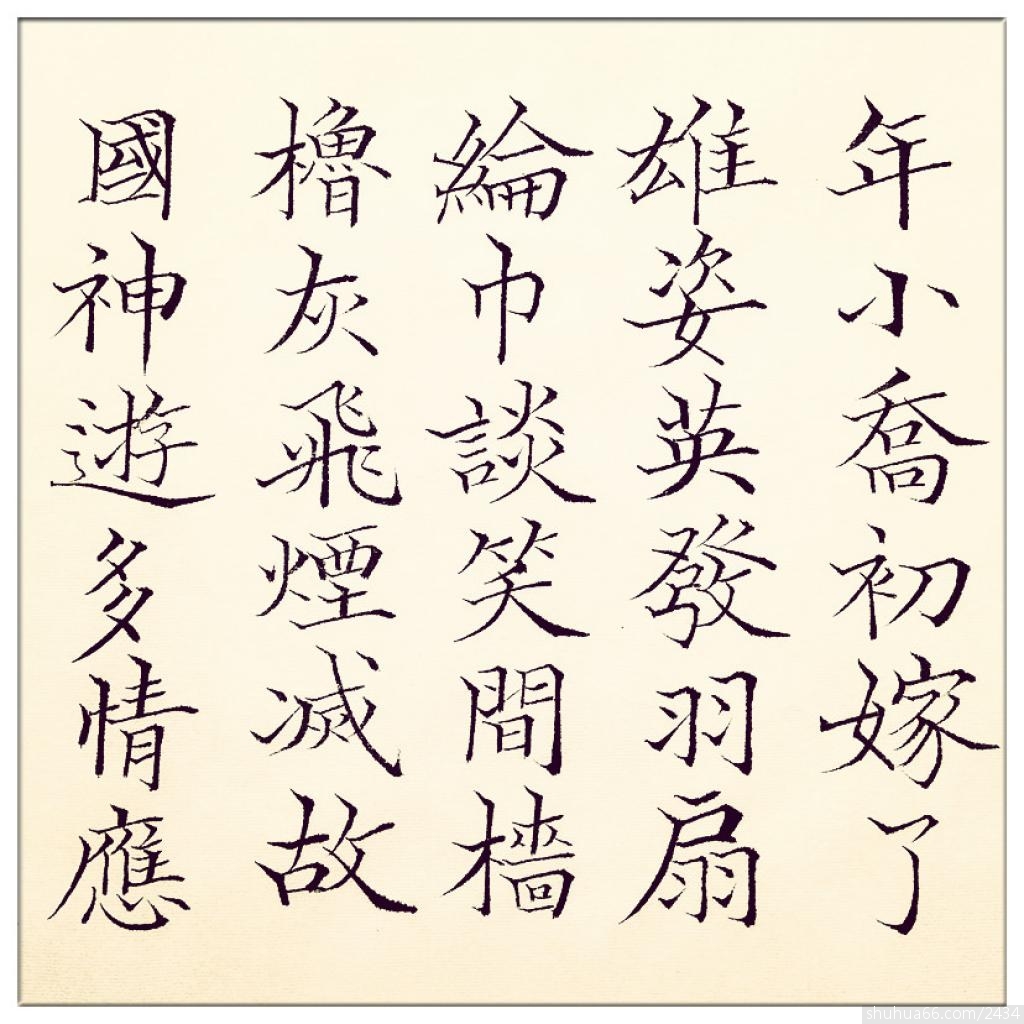 年小喬初嫁了
雄姿英發羽扇
綸巾談笑間檣
櫓灰飛煙滅故
國神遊多情應
shuhua66.com/2434